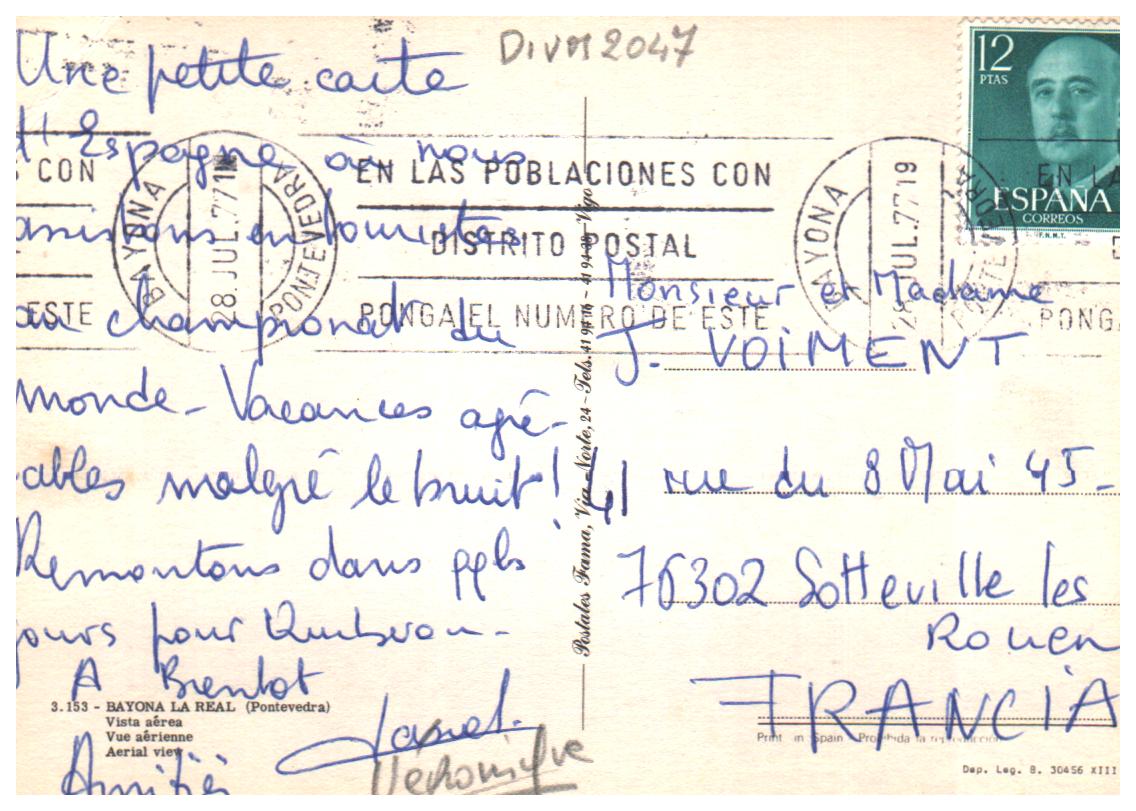 DIVM2047
Une petite carte
d'Espagne où nous
assistons en touristes
au championat du
monde - Vacances agré-
ables malgré le bruit!
Remontons dans qqls
jours pour Quiberon -
A Bientot
Amitiés
Véronique
3.153 - BAYONA LA REAL (Pontevedra)
Vista aérea
Vue aérienne
Aerial view
Postales Fama, Vía Norte, 24 - Tels. 41 94 76 - 41 94 38 - Vigo
12
PTAS
ESPAÑA
CORREOS
F.N.M.T.
CON
ESTE
BAYONA
28 JUL. 77 1
PONTEVEDRA
EN LAS POBLACIONES CON
DISTRITO POSTAL
PONGA EL NUMERO DE ESTE
BAYONA
28 JUL. 77 19
PONTEVEDRA
EN LA
PONGA
Monsieur et Madame
J. VOIMENT
41 rue du 8 Mai 45 -
76302 Sotteville les
Rouen
FRANCIA
Print in Spain - Prohibida la reproducción
Dep. Leg. B. 30456 XIII